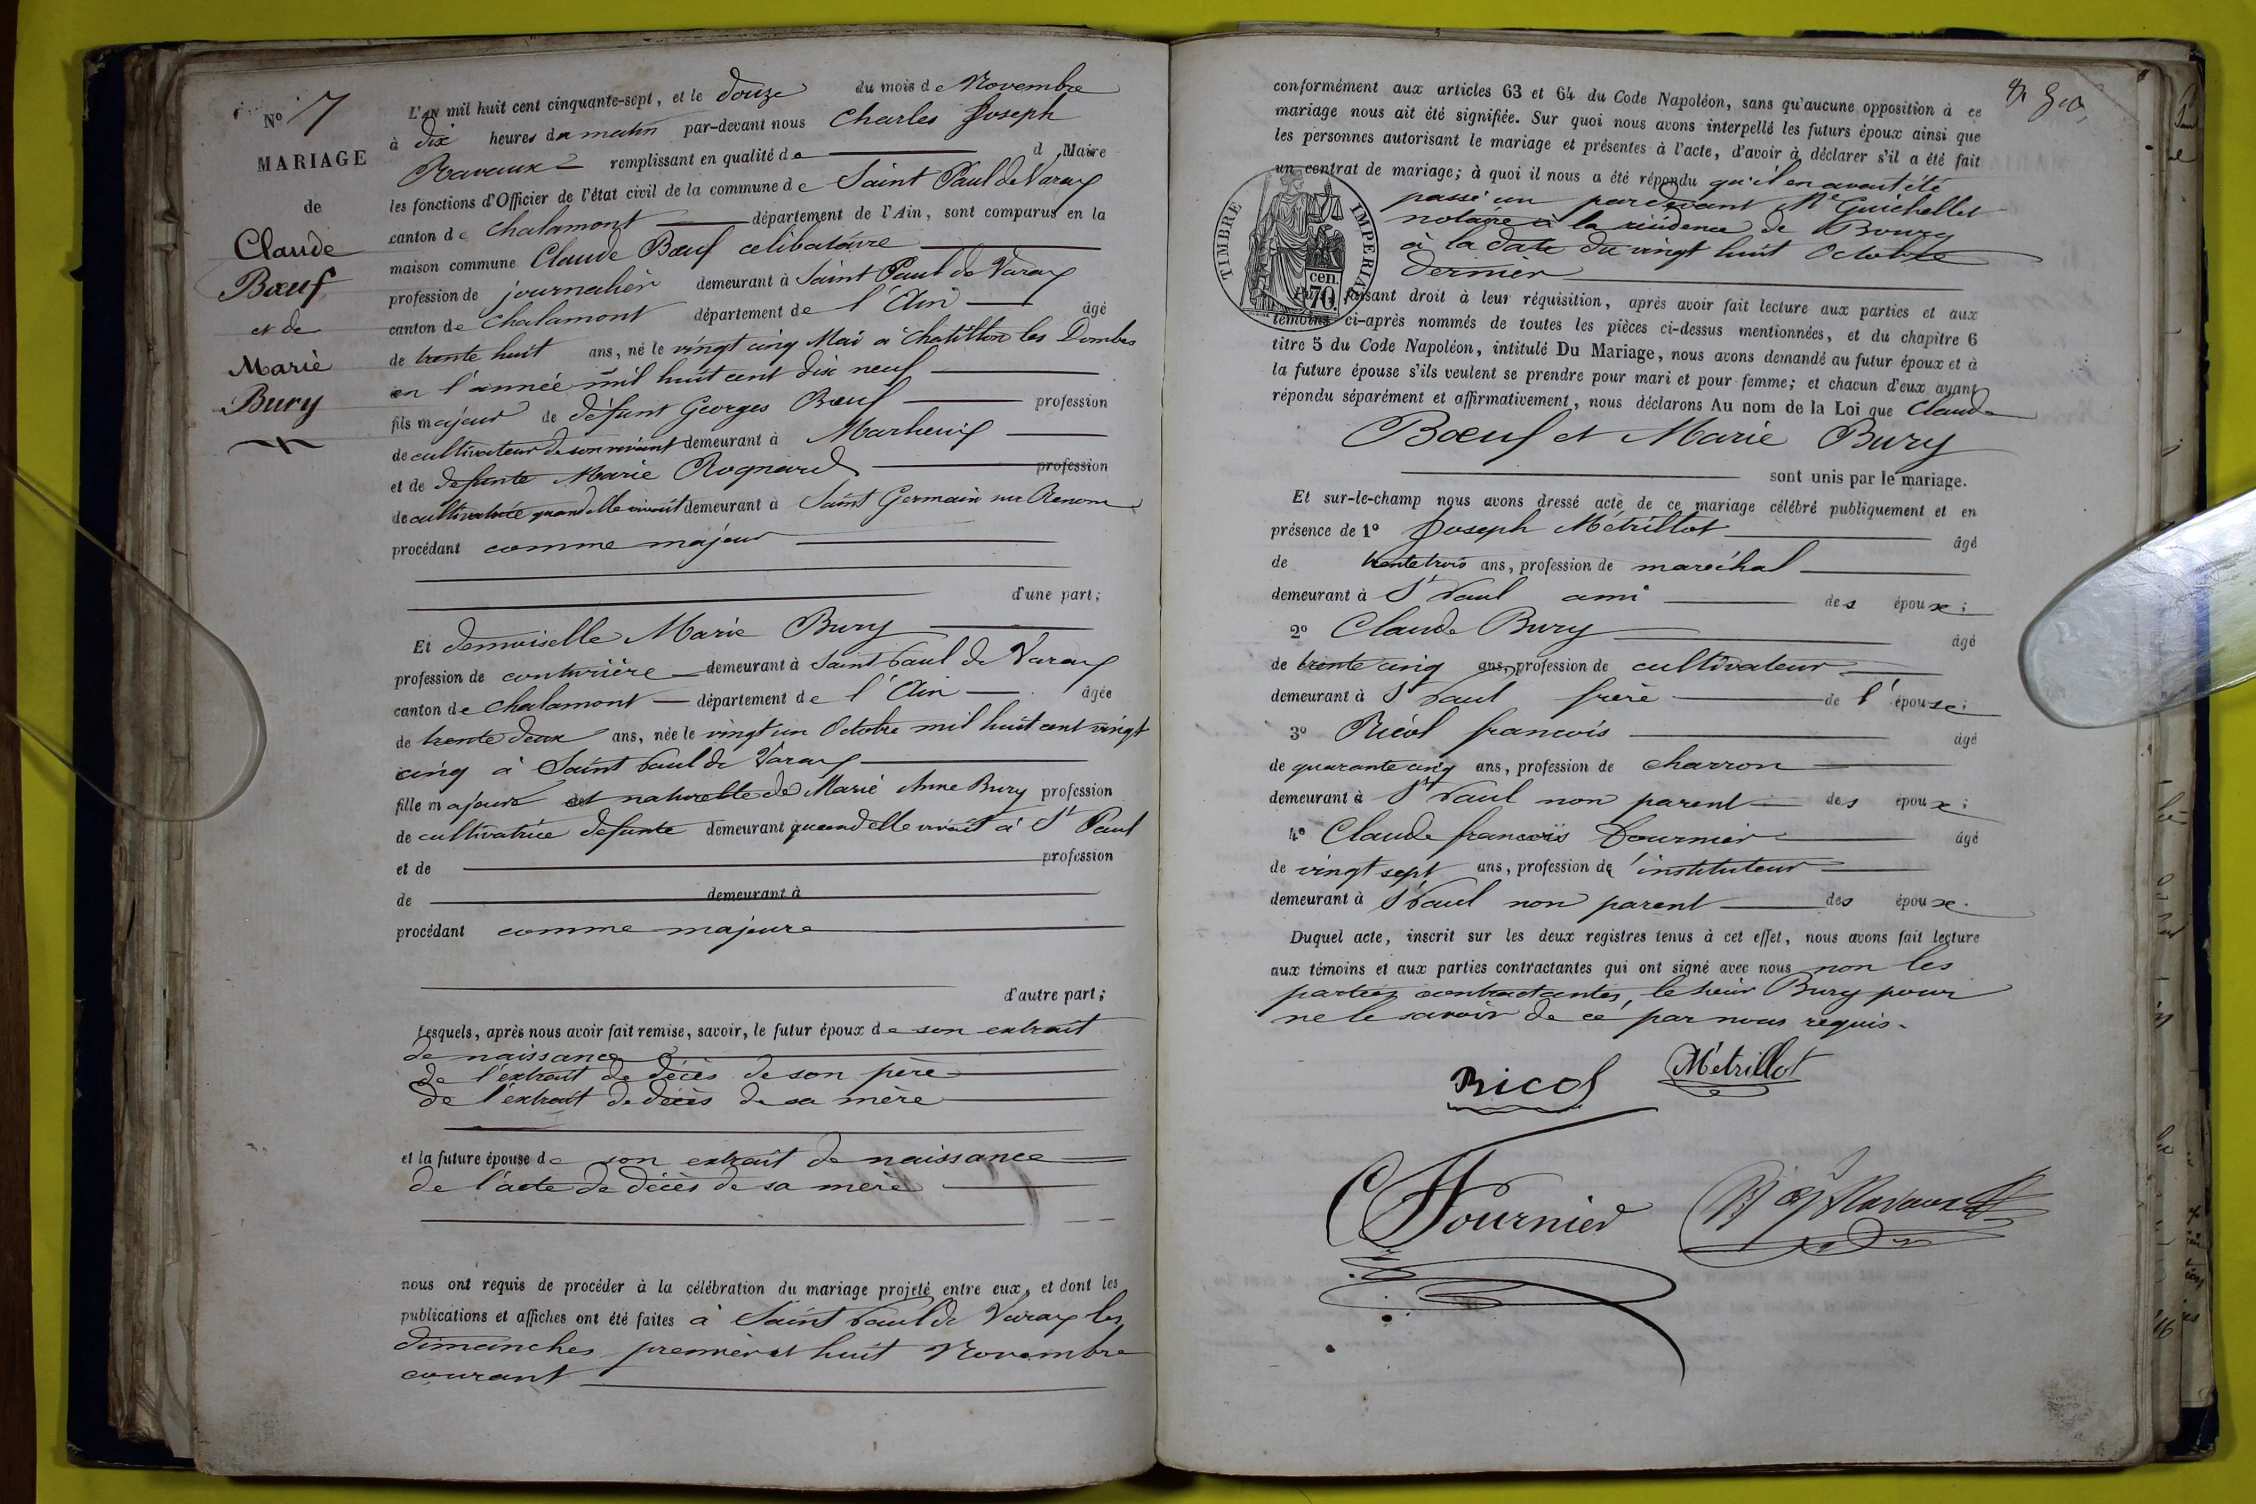 N° 7
MARIAGE
de
Claude
Bœuf
et de
Marie
Bury
L'AN mil huit cent cinquante-sept, et le douze du mois de Novembre
à dix heures du matin par-devant nous Charles Joseph
Ravaux remplissant en qualité de d Maire
les fonctions d'Officier de l'état civil de la commune de Saint Paul de Varax
canton de Chalamont département de l'Ain, sont comparus en la
maison commune Claude Bœuf celibataire
profession de journalier demeurant à Saint Paul de Varax
canton de Chalamont département de l'Ain âgé
de trente huit ans, né le vingt cinq Mai à Chatillon les Dombes
en l'année mil huit cent dix neuf
fils majeur de défunt Georges Bœuf profession
de cultivateur de son vivant demeurant à Marlieux
et de defunte Marie Rognard profession
de cultivatrice quand elle vivait demeurant à Saint Germain sur Renom
procédant comme majeur
d'une part;
Et demoiselle Marie Bury
profession de couturière demeurant à Saint Paul de Varax
canton de Chalamont département de l'Ain âgée
de trente deux ans, née le vingt un Octobre mil huit cent vingt
cinq à Saint Paul de Varax
fille majeure et naturelle de Marie Anne Bury profession
de cultivatrice defunte demeurant quand elle vivait à St Paul
et de profession
de demeurant à
procédant comme majeure
d'autre part;
Lesquels, après nous avoir fait remise, savoir, le futur époux de son extrait
de naissance
de l'extrait de décès de son père
de l'extrait de décès de sa mère
et la future épouse de son extrait de naissance
de l'acte de décès de sa mère
nous ont requis de procéder à la célébration du mariage projeté entre eux, et dont les
publications et affiches ont été faites à Saint Paul de Varax les
dimanches premier et huit Novembre
courant
conformément aux articles 63 et 64 du Code Napoléon, sans qu'aucune opposition à ce
mariage nous ait été signifiée. Sur quoi nous avons interpellé les futurs époux ainsi que
les personnes autorisant le mariage et présentes à l'acte, d'avoir à déclarer s'il a été fait
un contrat de mariage; à quoi il nous a été répondu qu'il en avait été
passé un par devant Me Guichellet
notaire à la résidence de Bourg
à la date du vingt huit Octobre
dernier
TIMBRE IMPERIAL
cen.
70.
faisant droit à leur réquisition, après avoir fait lecture aux parties et aux
témoins ci-après nommés de toutes les pièces ci-dessus mentionnées, et du chapitre 6
titre 5 du Code Napoléon, intitulé Du Mariage, nous avons demandé au futur époux et à
la future épouse s'ils veulent se prendre pour mari et pour femme; et chacun d'eux ayant
répondu séparément et affirmativement, nous déclarons Au nom de la Loi que Claude
Bœuf et Marie Bury
sont unis par le mariage.
Et sur-le-champ nous avons dressé acte de ce mariage célébré publiquement et en
présence de 1° Joseph Métrillot âgé
de trente trois ans, profession de maréchal
demeurant à St Paul ami des époux;
2° Claude Bury âgé
de trente cinq ans, profession de cultivateur
demeurant à St Paul frère de l'épouse;
3° Ricol francois âgé
de quarante cinq ans, profession de charron
demeurant à St Paul non parent des époux;
4° Claude francois Fournier âgé
de vingt sept ans, profession de instituteur
demeurant à St Paul non parent des époux.
Duquel acte, inscrit sur les deux registres tenus à cet effet, nous avons fait lecture
aux témoins et aux parties contractantes qui ont signé avec nous non les
parties contractantes, le sieur Bury pour
ne le savoir de ce par nous requis.
Ricol Métrillot
CF Fournier Ravaux